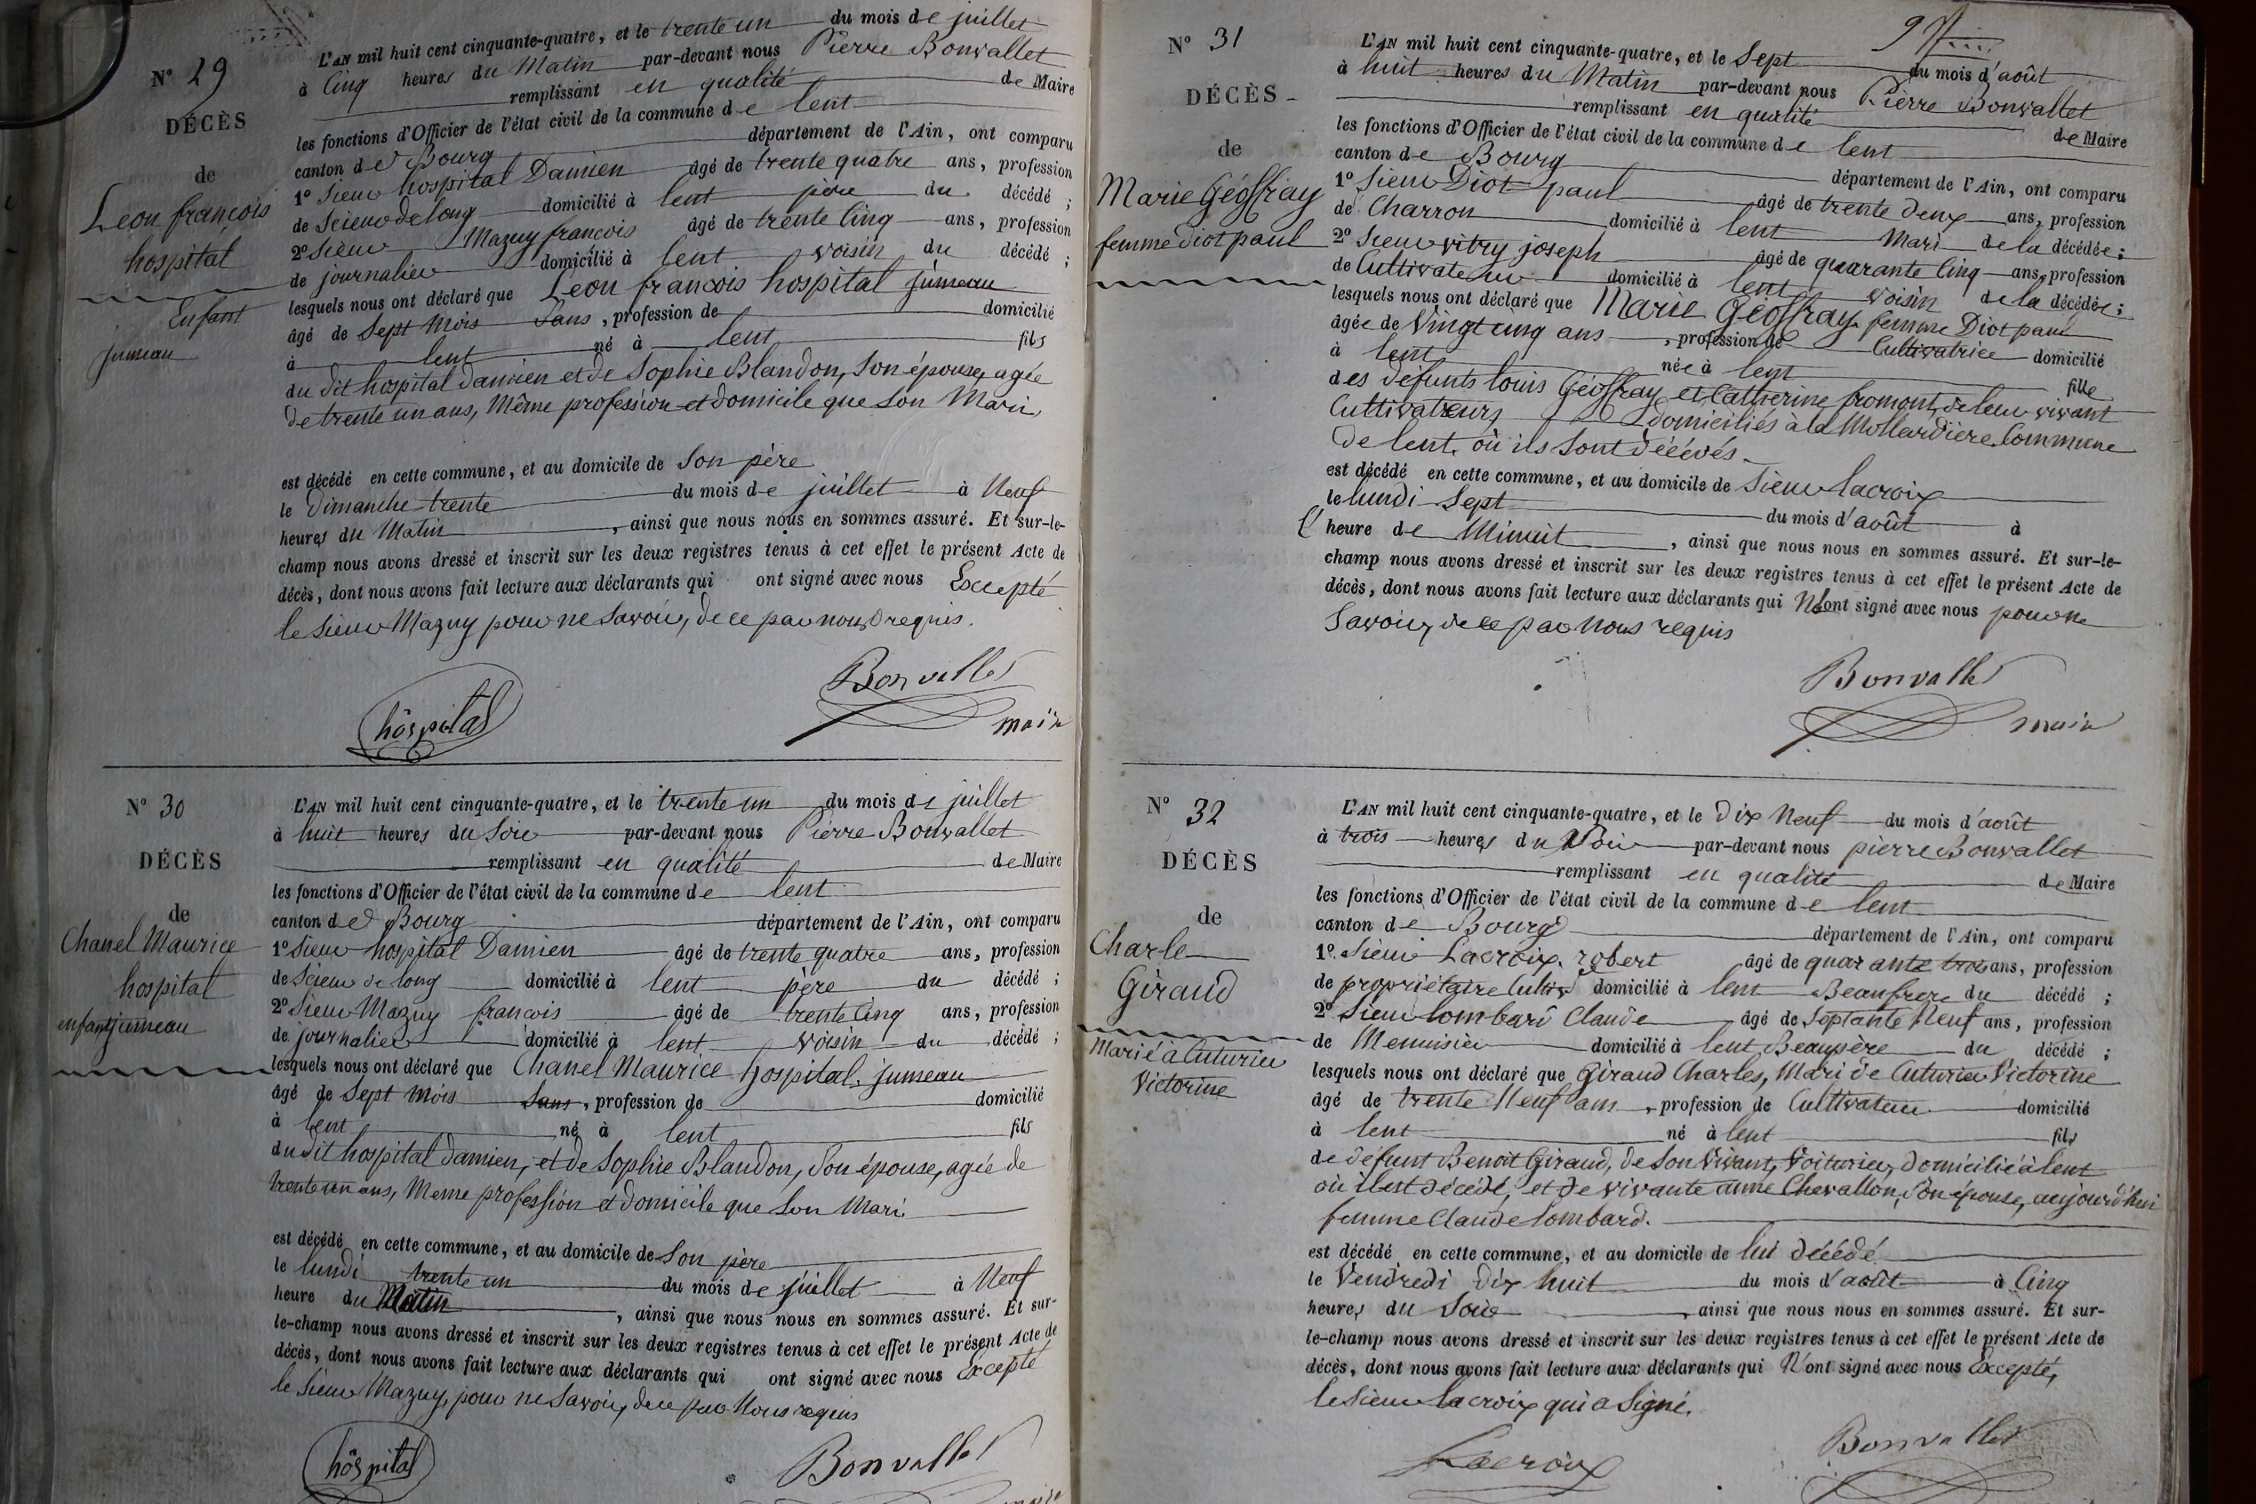 N° 29
DÉCÈS
de
Leon françois
hospital
Enfant
jumeau
L'AN mil huit cent cinquante-quatre, et le trente un du mois de juillet
à Cinq heures du Matin par-devant nous Pierre Bonvallet
remplissant en qualité de Maire
les fonctions d'Officier de l'état civil de la commune de lent
canton de Bourg département de l'Ain, ont comparu
1° Sieur hospital Damien âgé de trente quatre ans, profession
de Scieur de long domicilié à lent père du décédé ;
2° Sieur Mazuy françois âgé de trente Cinq ans, profession
de journalier domicilié à lent voisin du décédé ;
lesquels nous ont déclaré que Leon françois hospital jumeau
âgé de Sept Mois Sans, profession de domicilié
à lent né à lent fils
du dit hospital Damien et de Sophie Blandon, Son épouse, agée
de trente un ans, Même profession et domicile que Son Mari
est décédé en cette commune, et au domicile de Son père
le dimanche trente du mois de juillet à Neuf
heures du Matin, ainsi que nous nous en sommes assuré. Et sur-le-
champ nous avons dressé et inscrit sur les deux registres tenus à cet effet le présent Acte de
décès, dont nous avons fait lecture aux déclarants qui ont signé avec nous Excepté
le Sieur Mazuy pour ne Savoir, de ce par nous requis.
hôspital
Bonvallet
maire
N° 30
DÉCÈS
de
Chanel Maurice
hospital
enfant jumeau
L'AN mil huit cent cinquante-quatre, et le trente un du mois de juillet
à huit heures du Soir par-devant nous Pierre Bonvallet
remplissant en qualité de Maire
les fonctions d'Officier de l'état civil de la commune de lent
canton de Bourg département de l'Ain, ont comparu
1° Sieur hospital Damien âgé de trente quatre ans, profession
de Scieur de long domicilié à lent père du décédé ;
2° Sieur Mazuy françois âgé de trente Cinq ans, profession
de journalier domicilié à lent voisin du décédé ;
lesquels nous ont déclaré que Chanel Maurice hospital, jumeau
âgé de Sept Mois Sans, profession de domicilié
à lent né à lent fils
du dit hospital Damien, et de Sophie Blandon, Son épouse, agée de
trente un ans, Meme profession et domicile que Son Mari
est décédé en cette commune, et au domicile de Son père
le lundi trente un du mois de juillet à Neuf
heure du Matin, ainsi que nous nous en sommes assuré. Et sur-
le-champ nous avons dressé et inscrit sur les deux registres tenus à cet effet le présent Acte de
décès, dont nous avons fait lecture aux déclarants qui ont signé avec nous Excepté
le Sieur Mazuy, pour ne Savoir, de ce par Nous requis
hôspital
Bonvallet
N° 31
DÉCÈS
de
Marie Géoffray
femme Diot paul
L'AN mil huit cent cinquante-quatre, et le Sept du mois d'août
à huit heures du Matin par-devant nous Pierre Bonvallet
remplissant en qualité de Maire
les fonctions d'Officier de l'état civil de la commune de lent
canton de Bourg département de l'Ain, ont comparu
1° Sieur Diot paul âgé de trente Deux ans, profession
de Charron domicilié à lent Mari de la décédée ;
2° Sieur vitry joseph âgé de quarante Cinq ans, profession
de Cultivateur domicilié à lent voisin de la décédée ;
lesquels nous ont déclaré que Marie Géoffray femme Diot paul
âgée de Vingt cinq ans, profession de Cultivatrice domicilié
à lent née à lent fille
des défunts louis Géoffray et Catherine fromont, de leur vivant
Cultivateurs, domiciliés à la Mollardière, Commune
de lent, où ils Sont décédés
est décédé en cette commune, et au domicile de Sieur lacroix
le lundi Sept du mois d'août à
l' heure de Minuit, ainsi que nous nous en sommes assuré. Et sur-le-
champ nous avons dressé et inscrit sur les deux registres tenus à cet effet le présent Acte de
décès, dont nous avons fait lecture aux déclarants qui N'ont signé avec nous pour ne
Savoir, de ce par Nous requis
Bonvallet
maire
N° 32
DÉCÈS
de
Charle
Giraud
Marié à Cuturier
Victorine
L'AN mil huit cent cinquante-quatre, et le Dix Neuf du mois d'août
à trois heures du Soir par-devant nous pierre Bonvallet
remplissant en qualité de Maire
les fonctions d'Officier de l'état civil de la commune de lent
canton de Bourg département de l'Ain, ont comparu
1° Sieur Lacroix robert âgé de quarante trois ans, profession
de propriétaire Cultiv domicilié à lent Beaufrere du décédé ;
2° Sieur lombard Claude âgé de Septante Neuf ans, profession
de Menuisier domicilié à lent Beaupère du décédé ;
lesquels nous ont déclaré que Giraud Charles, Mari de Cuturier Victorine
âgé de trente Neuf ans, profession de Cultivateur domicilié
à lent né à lent fils
de défunt Benoit Giraud, de Son Vivant, Voiturier, domicilié à lent
où il est décédé, et de vivante anne Chevallon, Son épouse, aujourd'hui
femme Claude lombard.
est décédé en cette commune, et au domicile de lui décédé
le Vendredi dix huit du mois d'août à Cinq
heures du Soir, ainsi que nous nous en sommes assuré. Et sur-
le-champ nous avons dressé et inscrit sur les deux registres tenus à cet effet le présent Acte de
décès, dont nous avons fait lecture aux déclarants qui N'ont signé avec nous Excepté,
le Sieur lacroix qui a Signé.
Lacroix
Bonvallet